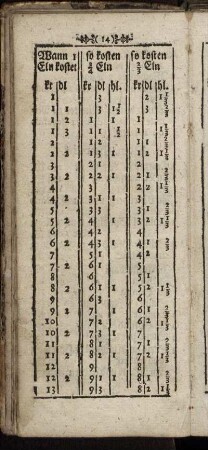 ( 14 )
Wann 1 so kosten so kosten
Eln kostet ¾ Eln ⅔ Eln
kr dl kr dl hl. kr dl hl.
1 3 2 1⅓
1 1 3 1½ 3 ⅔
1 2 1 1 1
1 3 1 1 ½ 1 1⅓
2 1 2 1 1 ⅔
2 2 1 3 1 1 2 1⅓
3 2 1 2
3 2 2 2 1 2 1 ⅔
4 3 2 2 1⅓
4 2 3 1 1 3
5 3 3 3 1 ⅔
5 2 4 1 3 2 1⅓
6 4 2 4
6 2 4 3 1 4 1 ⅔
7 5 1 4 2 1⅓
7 2 5 2 1 5
8 6 5 1 ⅔
8 2 6 1 1 5 2 1⅓
9 6 3 6
9 2 7 1 6 1 ⅔
10 7 2 6 2 1⅓
10 2 7 3 1 7
11 8 1 7 1 ⅔
11 2 8 2 1 7 2 1⅓
12 9 8
12 2 9 1 1 8 1 ⅔
13 9 3 8 2 1⅓